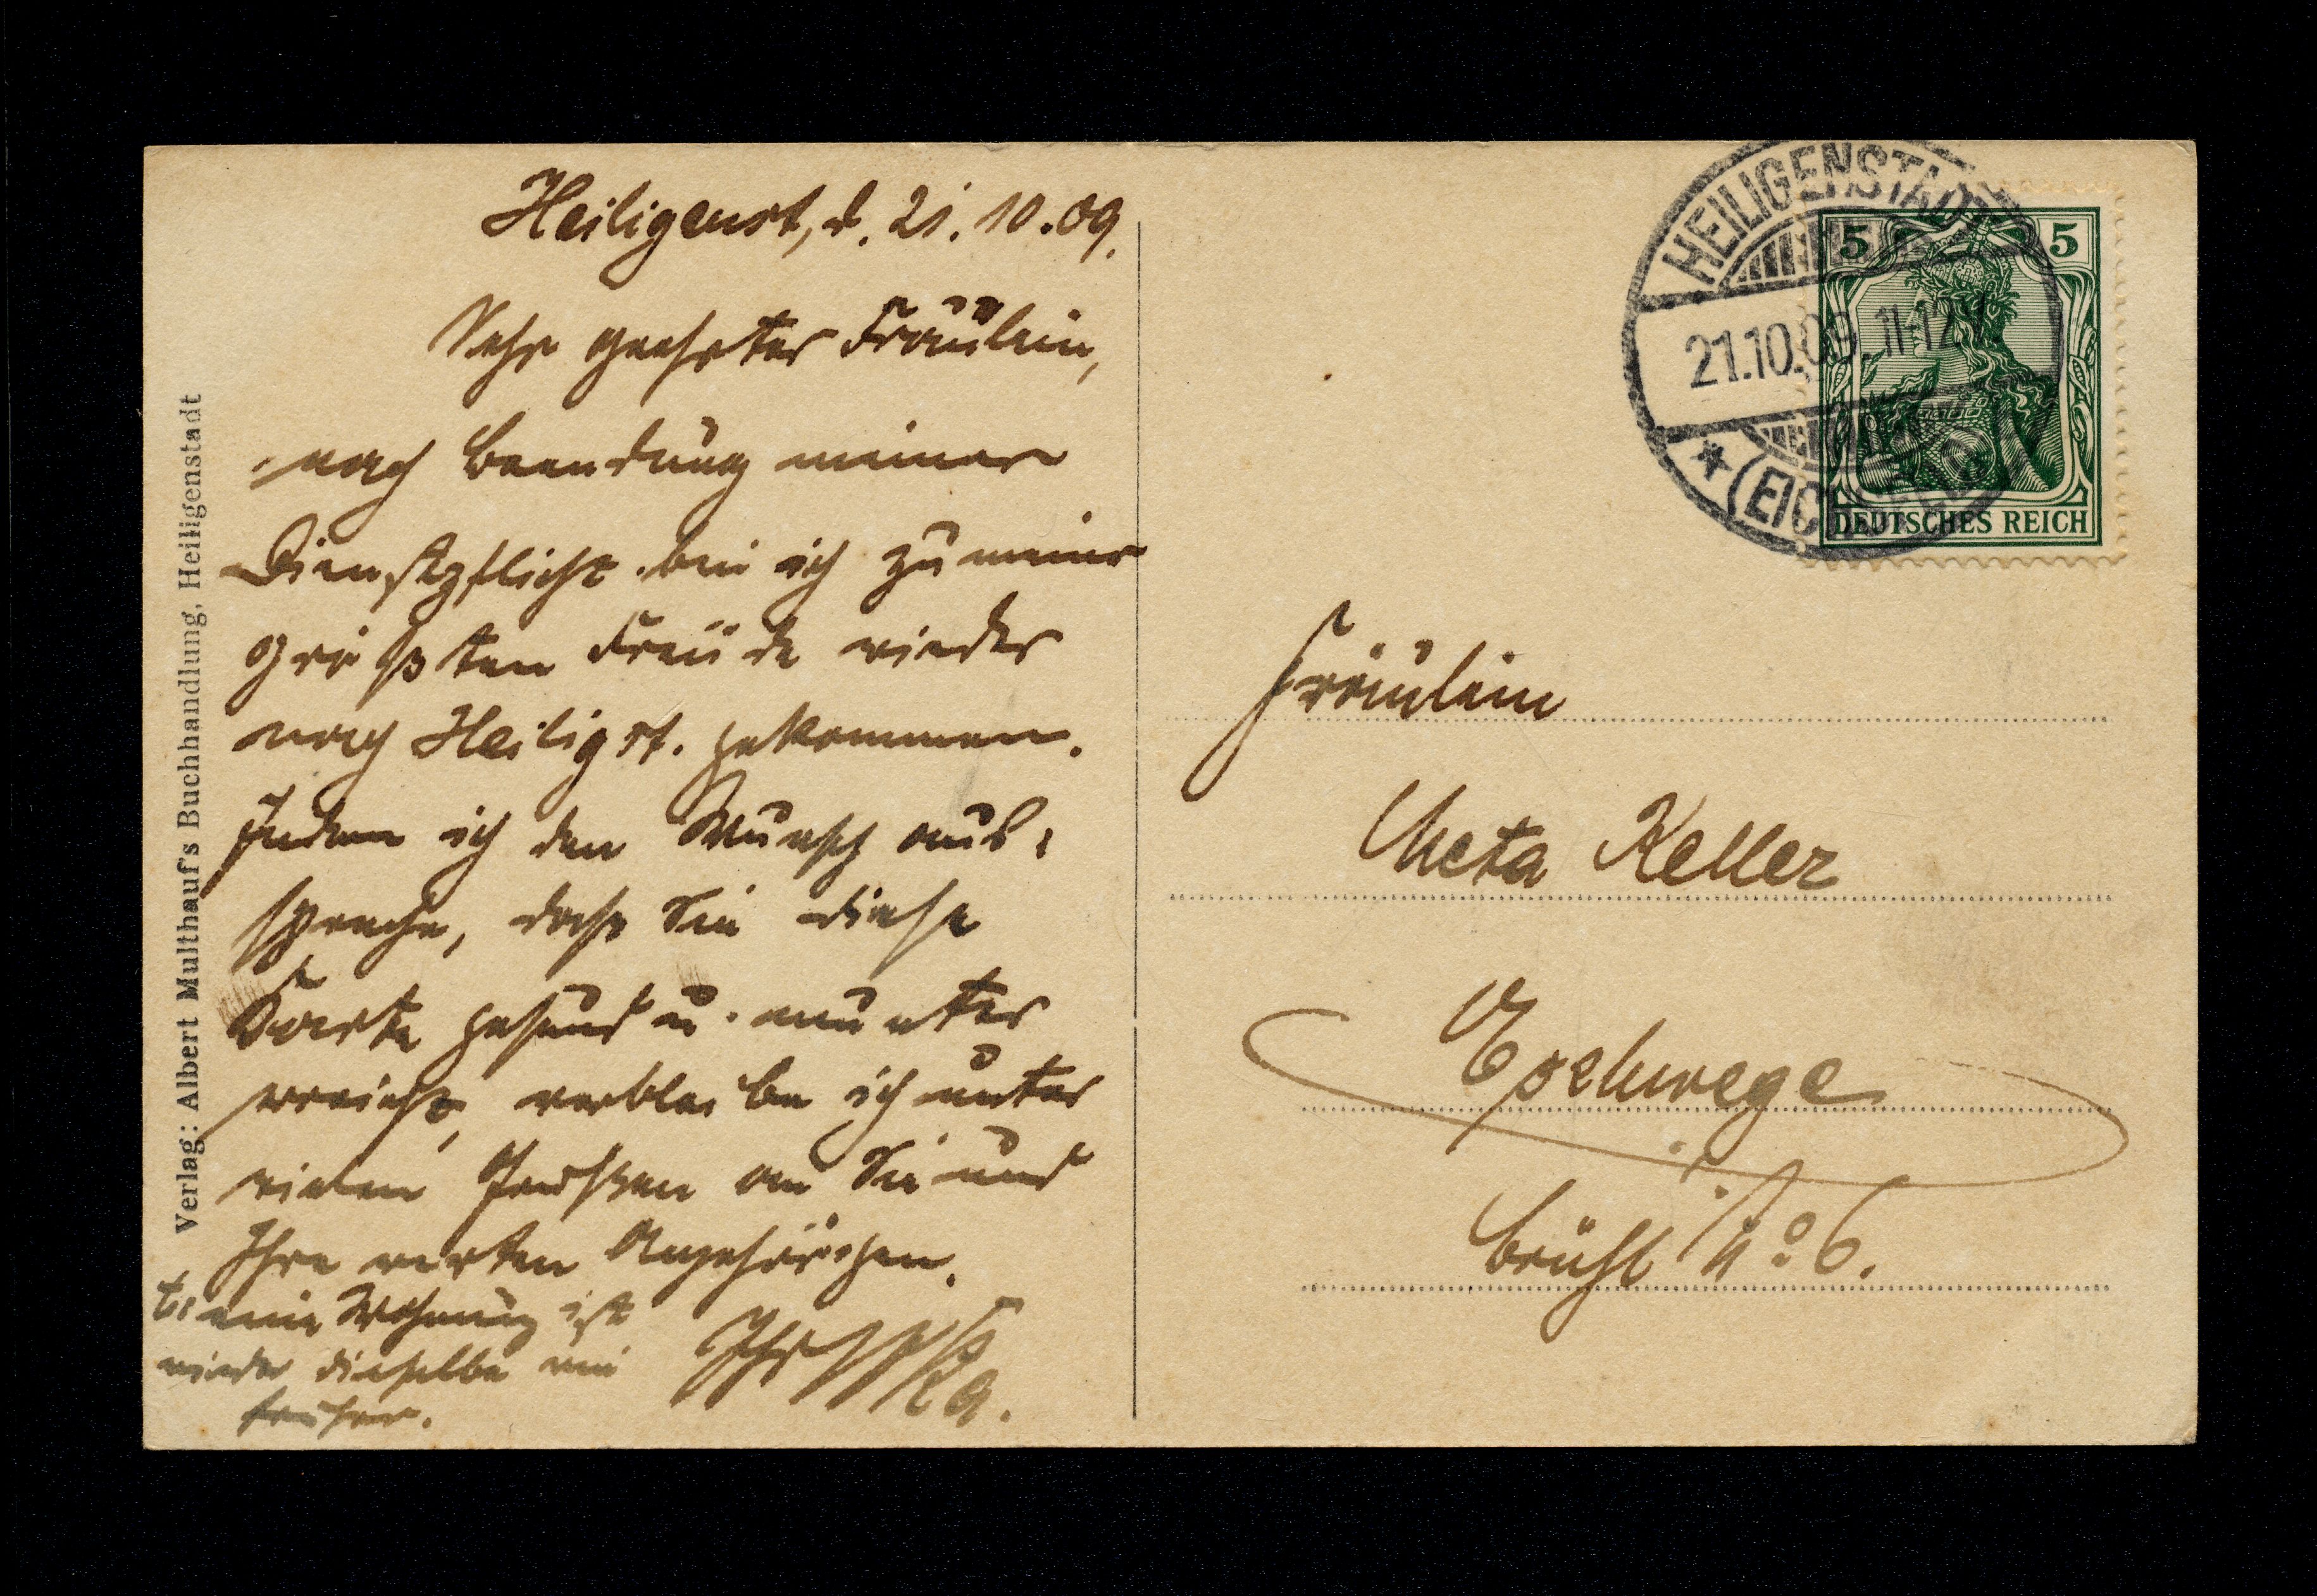 Heiligenst, d. 21.10.09.
Sehr geehrtes Fräulein,
nach Beendung meiner
Dienstpflicht bin ich zu meiner
größten Freude wieder
nach Heiligst. gekommen.
Indem ich den Wunsch aus-
spreche, dass Sie diese
Karte gesund u. munter
erreicht, verbleibe ich unter
vielen Grüssen an Sie und
Ihre werten Angehörigen.
Ihr
meine Wohnung ist
wieder dieselbe wie
früher.
Verlag: Albert Multhauf's Buchhandlung, Heiligenstadt
HEILIGENSTADT
21.10.09. 11-12 V.
5 5
DEUTSCHES REICH
Fräulein
Meta Keller
Eschwege
Brühl No 6.